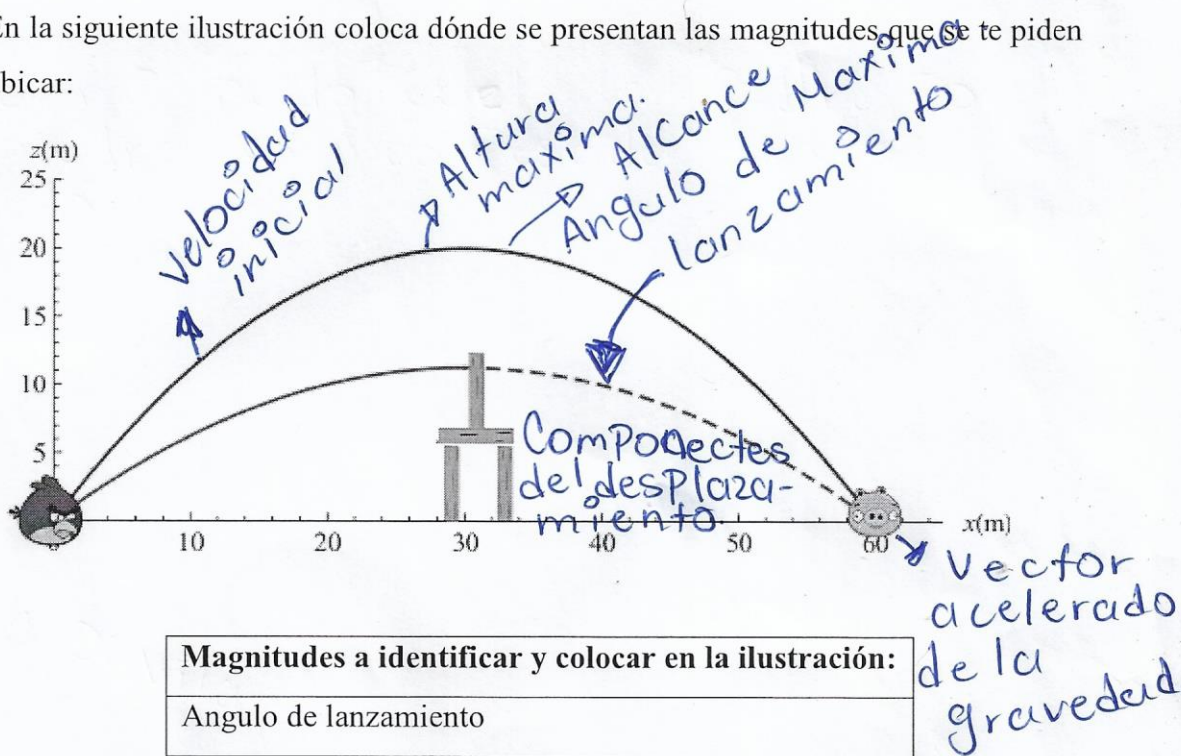 En la siguiente ilustración coloca dónde se presentan las magnitudes que se te piden
bicar:
z(m)
25
20
15
10
5
velocidad
inicial
Altura
maxima.
Alcance Maxima
Angulo de
lanzamiento
Componectes
del desplaza-
miento
0
10
20
30
40
50
60
x(m)
Vector
acelerado
de la
gravedad
Magnitudes a identificar y colocar en la ilustración:
Angulo de lanzamiento